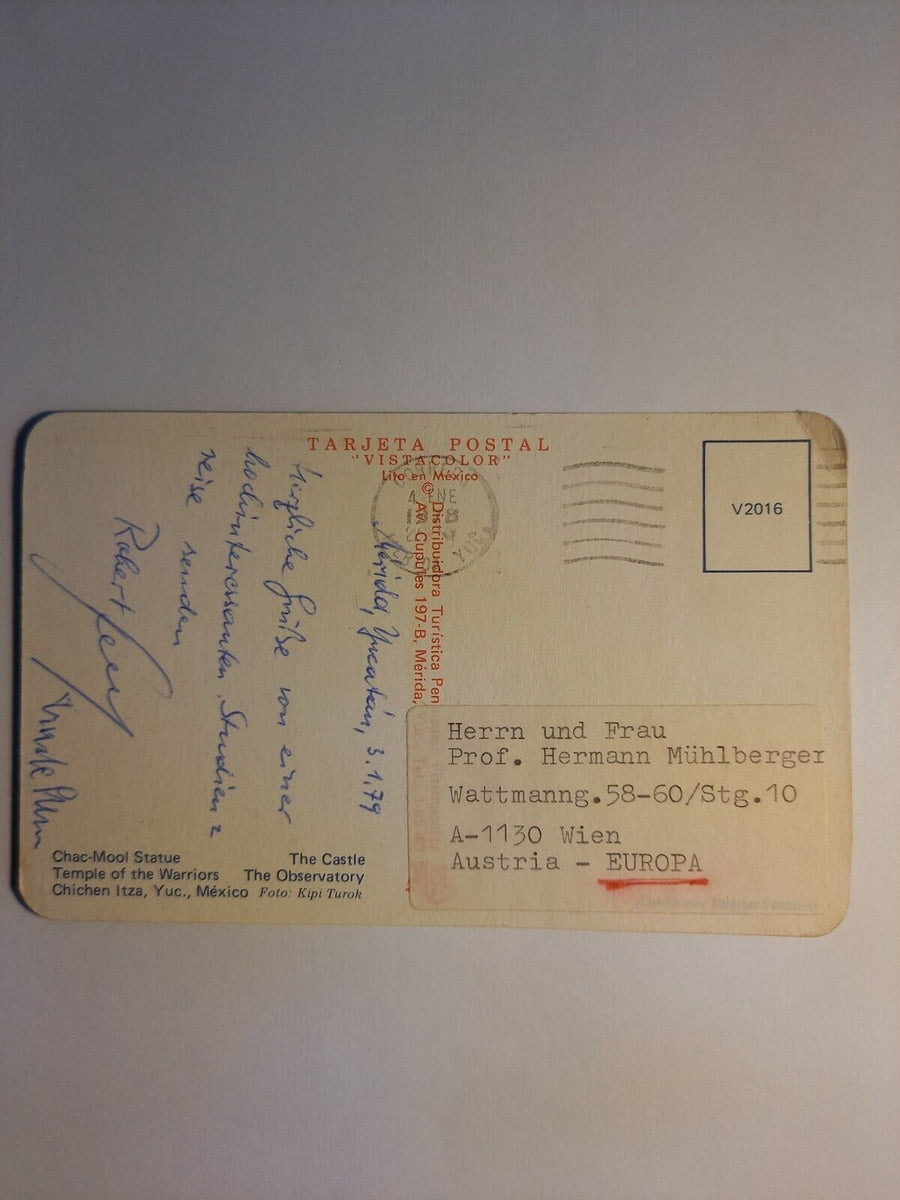 TARJETA POSTAL
"VISTACOLOR"
Lito en México
©
Distribuidora Turística Pen
Av. Cupules 197-B, Mérida,
V2016
ENE
Mérida, Yucatán, 3.1.79
Herzliche Grüße von einer
hochinteressanten Studien=
reise senden
Robert
Herrn und Frau
Prof. Hermann Mühlberger
Wattmanng.58-60/Stg.10
A-1130 Wien
Austria - EUROPA
Chac-Mool Statue The Castle
Temple of the Warriors The Observatory
Chichen Itza, Yuc., México Foto: Kipi Turok